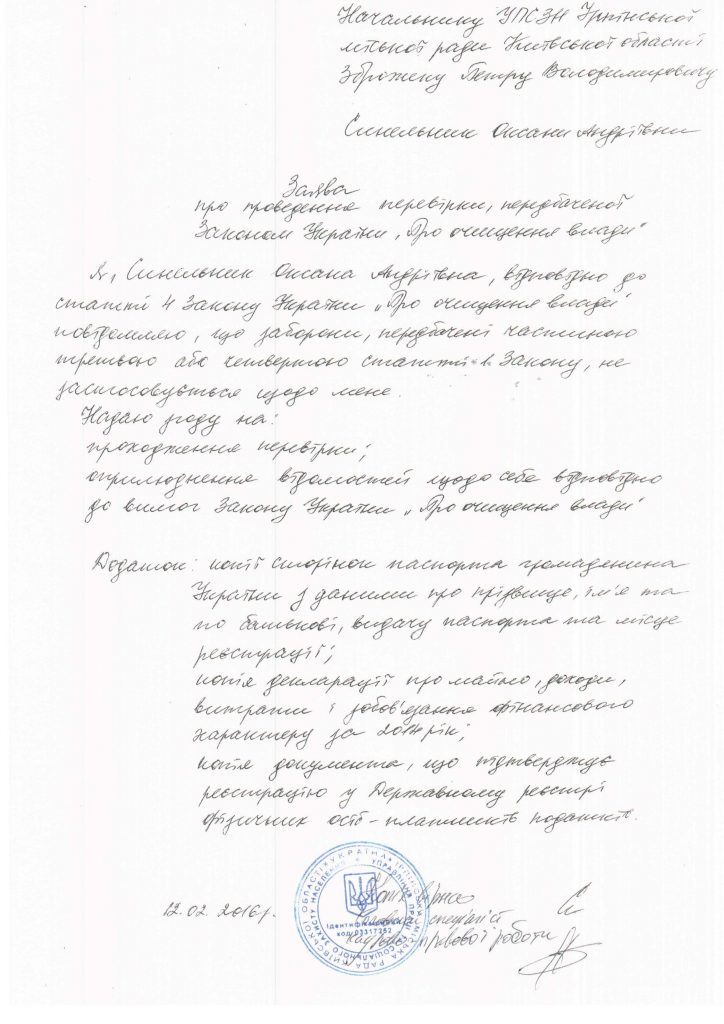 Начальнику УПСЗН Ірпінської
міської ради Київської області
Зброжеку Петру Володимировичу
Синельник Оксани Андріївни
Заява
про проведення перевірки, передбаченої
Законом України „Про очищення влади"
Я, Синельник Оксана Андріївна, відповідно до
статті 4 Закону України „Про очищення влади"
повідомляю, що заборони, передбачені частиною
третьою або четвертою статті 1 Закону, не
застосовується щодо мене.
Надаю згоду на:
проходження перевірки;
оприлюднення відомостей щодо себе відповідно
до вимог Закону України „Про очищення влади"
Додаток: копії сторінок паспорта громадянина
України з даними про прізвище, ім'я та
по батькові, видачу паспорта та місце
реєстрації;
копія декларації про майно, доходи,
витрати і зобов'язання фінансового
характеру за 2014 рік;
копія документа, що підтверджує
реєстрацію у Державному реєстрі
фізичних осіб – платників податків.
12.02.2016р.
Копія вірна
Головний спеціаліст
правової роботи
УКРАЇНА * ІРПІНСЬКА МІСЬКА РАДА КИЇВСЬКОЇ ОБЛАСТІ
УПРАВЛІННЯ ПРАЦІ СОЦІАЛЬНОГО ЗАХИСТУ НАСЕЛЕННЯ
Ідентифікаційний
код 03317252